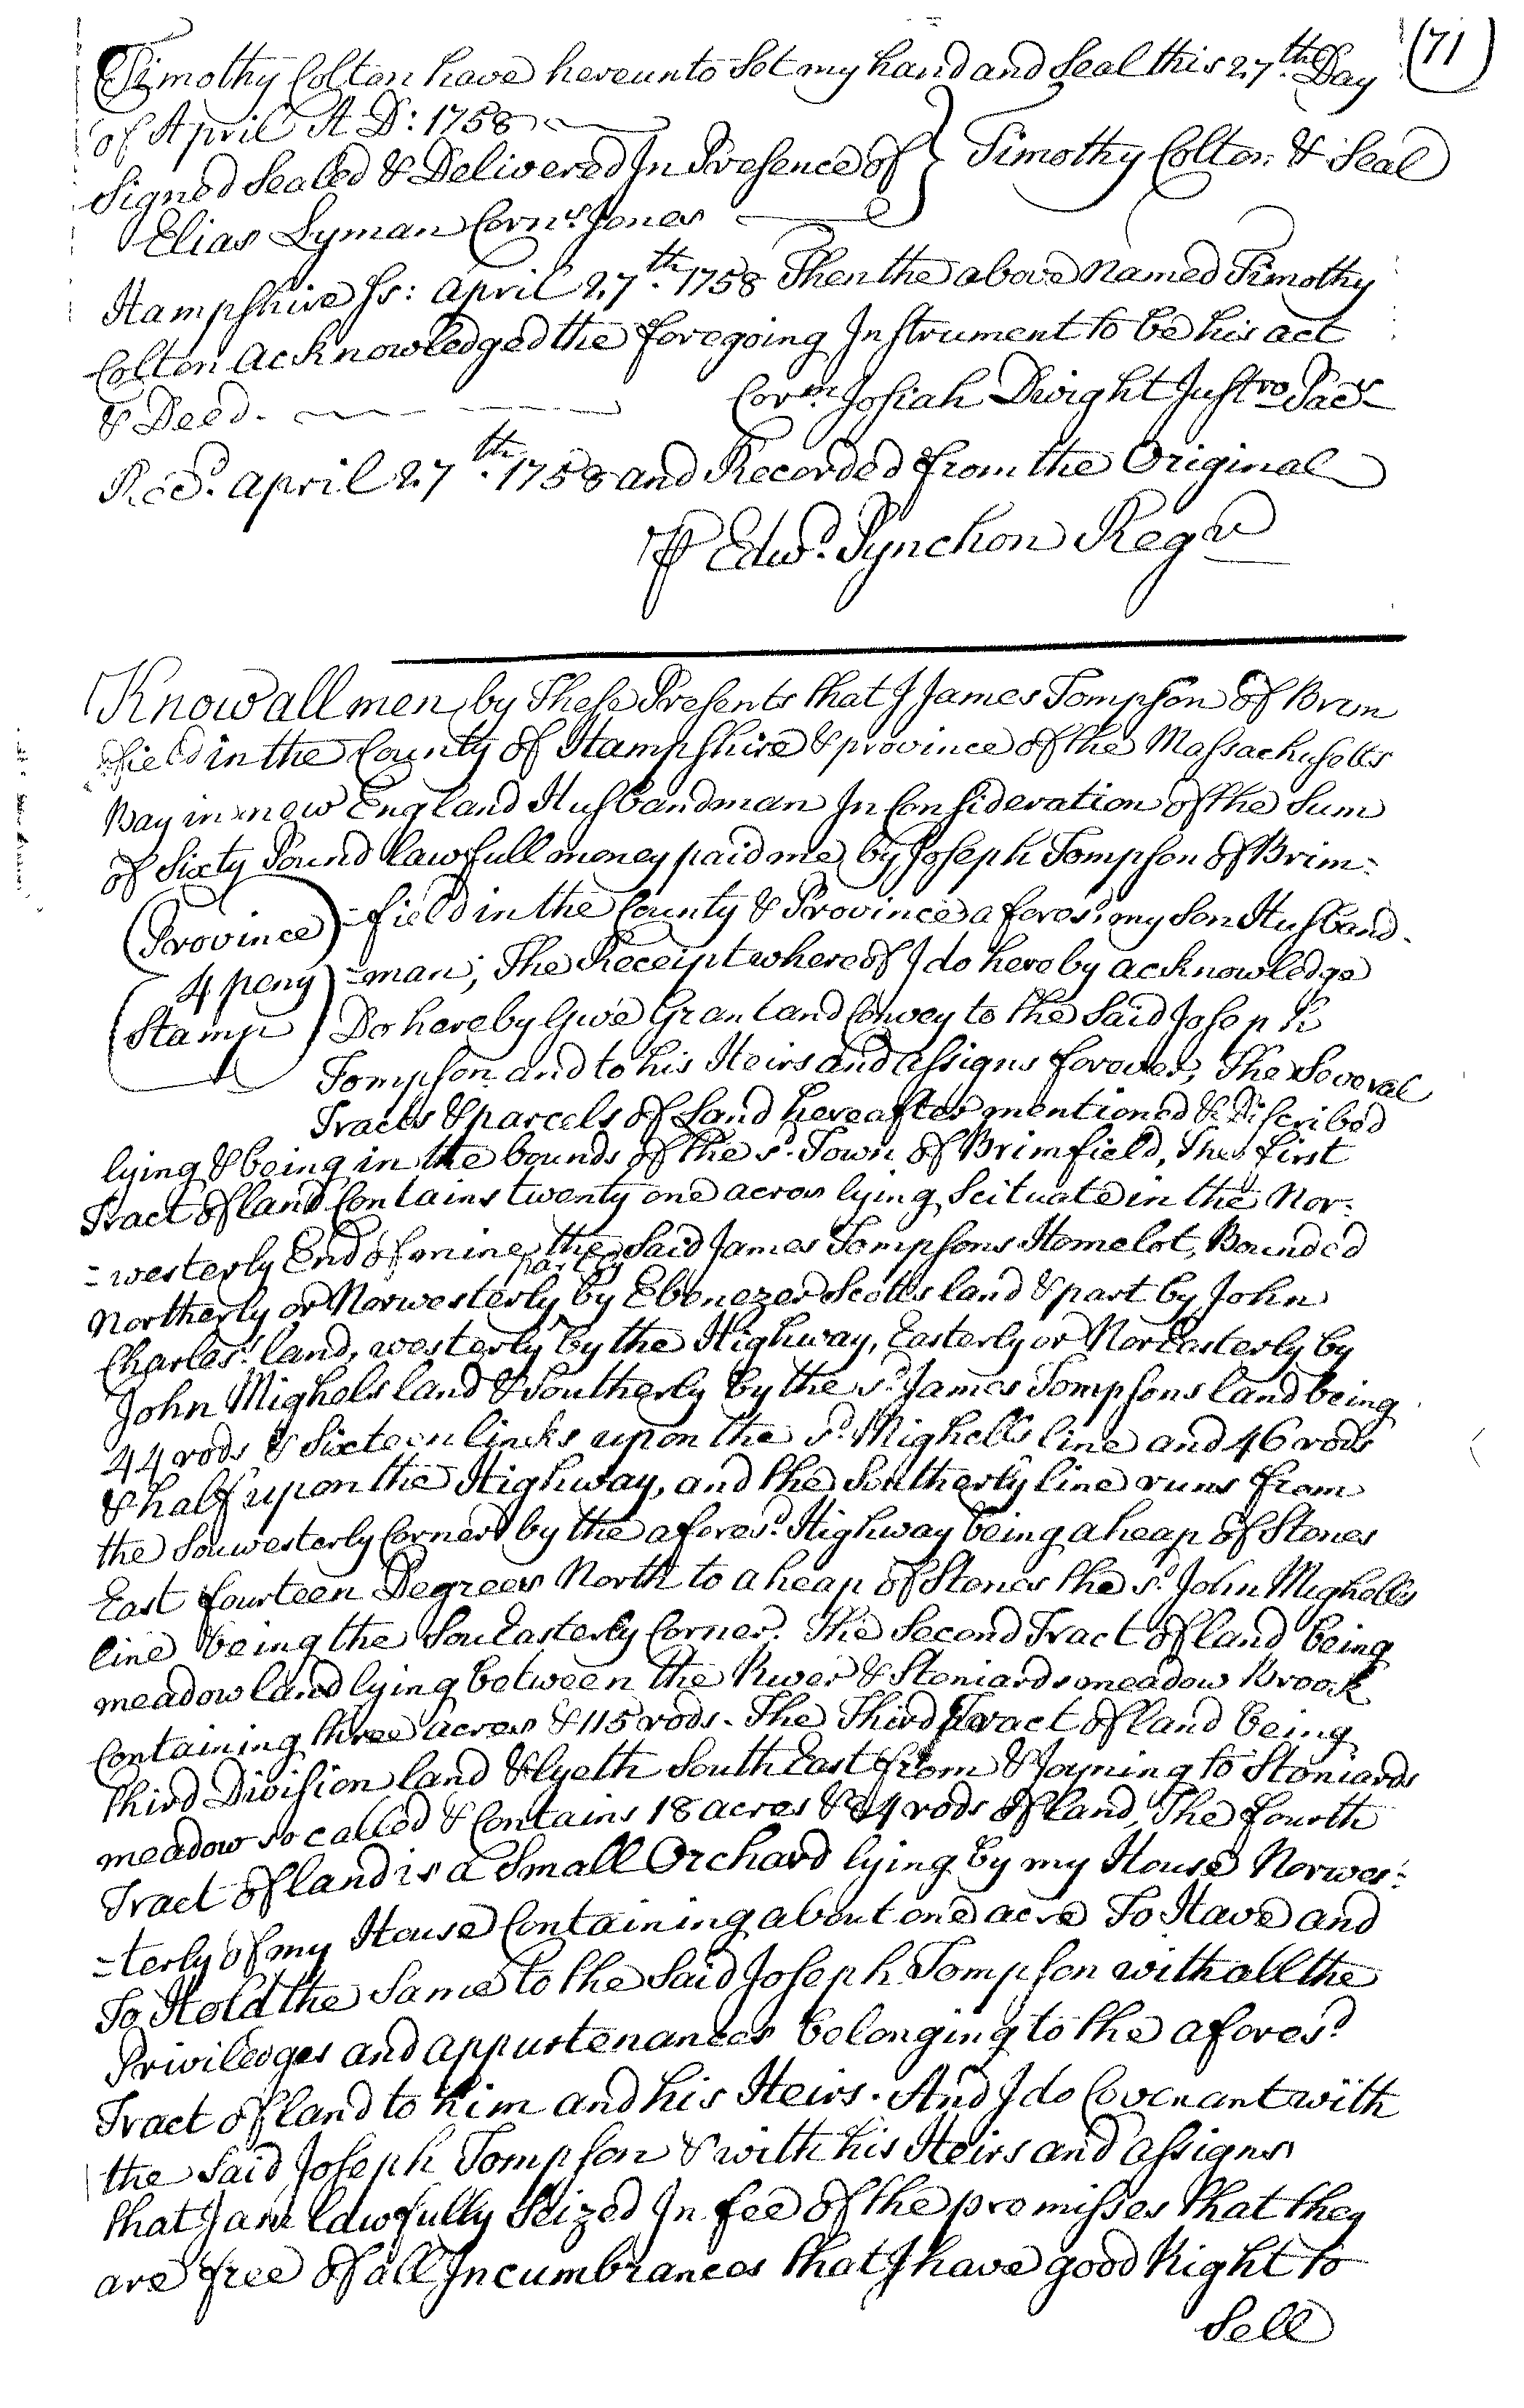 (71)
Timothy Colton have hereunto Set my hand and Seal this 27th. Day
of April A D: 1758
Signed Sealed & Delivered In Presence of } Timothy Colton & Seal
Elias Lyman Corns. Jones
Hampshire Ss: april 27th. 1758 Then the above Named Timothy
Colton acknowledged the foregoing Instrument to be his act
& Deed.
Corm. Josiah Dwight Justro. Pacs.
Recd. april 27th. 1758 and Recorded from the Original
P Edwd. Pynchon Regr
Know all men by These Presents that I James Tompson of Brim
field in the County of Hampshire & province of the Massachusetts
Bay in new England Husbandman In Consideration of the Sum
of Sixty Pound lawfull money paid me by Joseph Tompson of Brim=
=field in the County & Province aforesd. my Son Husband
(Province
4 peny
Stamp)
=man; The Receipt whereof I do hereby acknowledge
Do hereby Give Grant and Convey to the Said Joseph
Tompson and to his Heirs and assigns forever, The Several
Tracts & parcels of Land hereafter mentioned & Discribed
lying & being in the bounds of the sd. Town of Brimfield, The first
Tract of land Contains twenty one acres lying Scituate in the Nor=
=westerly End of mine the Said James Tompsons Homelot, Bounded
partly
Northerly or Norwesterly by Ebenezer Scotts land & part by John
Charles' land, westerly by the Highway, Easterly or NorEasterly by
John Mighels land & Southerly by the sd. James Tompsons land being
44 rods & Sixteen links upon the sd. Mighells line and 46 rods
& half upon the Highway, and the Southerly line runs from
the Souwesterly Corner by the aforesd. Highway being a heap of Stones
East fourteen Degrees North to a heap of Stones the sd. John Mighells
line being the SouEasterly Corner. The Second Tract of land being
meadow land lying between the River & Stoniards meadow Brook
Containing three acres & 115 rods. The Third Tract of land being
third Division land & lyeth South East from & Joyning to Stoniards
meadow so called & Contains 18 acres & 84 rods of land, The fourth
Tract of land is a Small Orchard lying by my House Norwes=
=terly of my House Containing about one acre To Have and
To Hold the Same to the Said Joseph Tompson with all the
Priviledges and appurtenances belonging to the aforesd.
Tract of land to him and his Heirs. And I do Covenant with
the Said Joseph Tompson & with his Heirs and assigns
that I am lawfully Seized In fee of the premisses that they
are free of all Incumbrances that I have good Right to
Sell